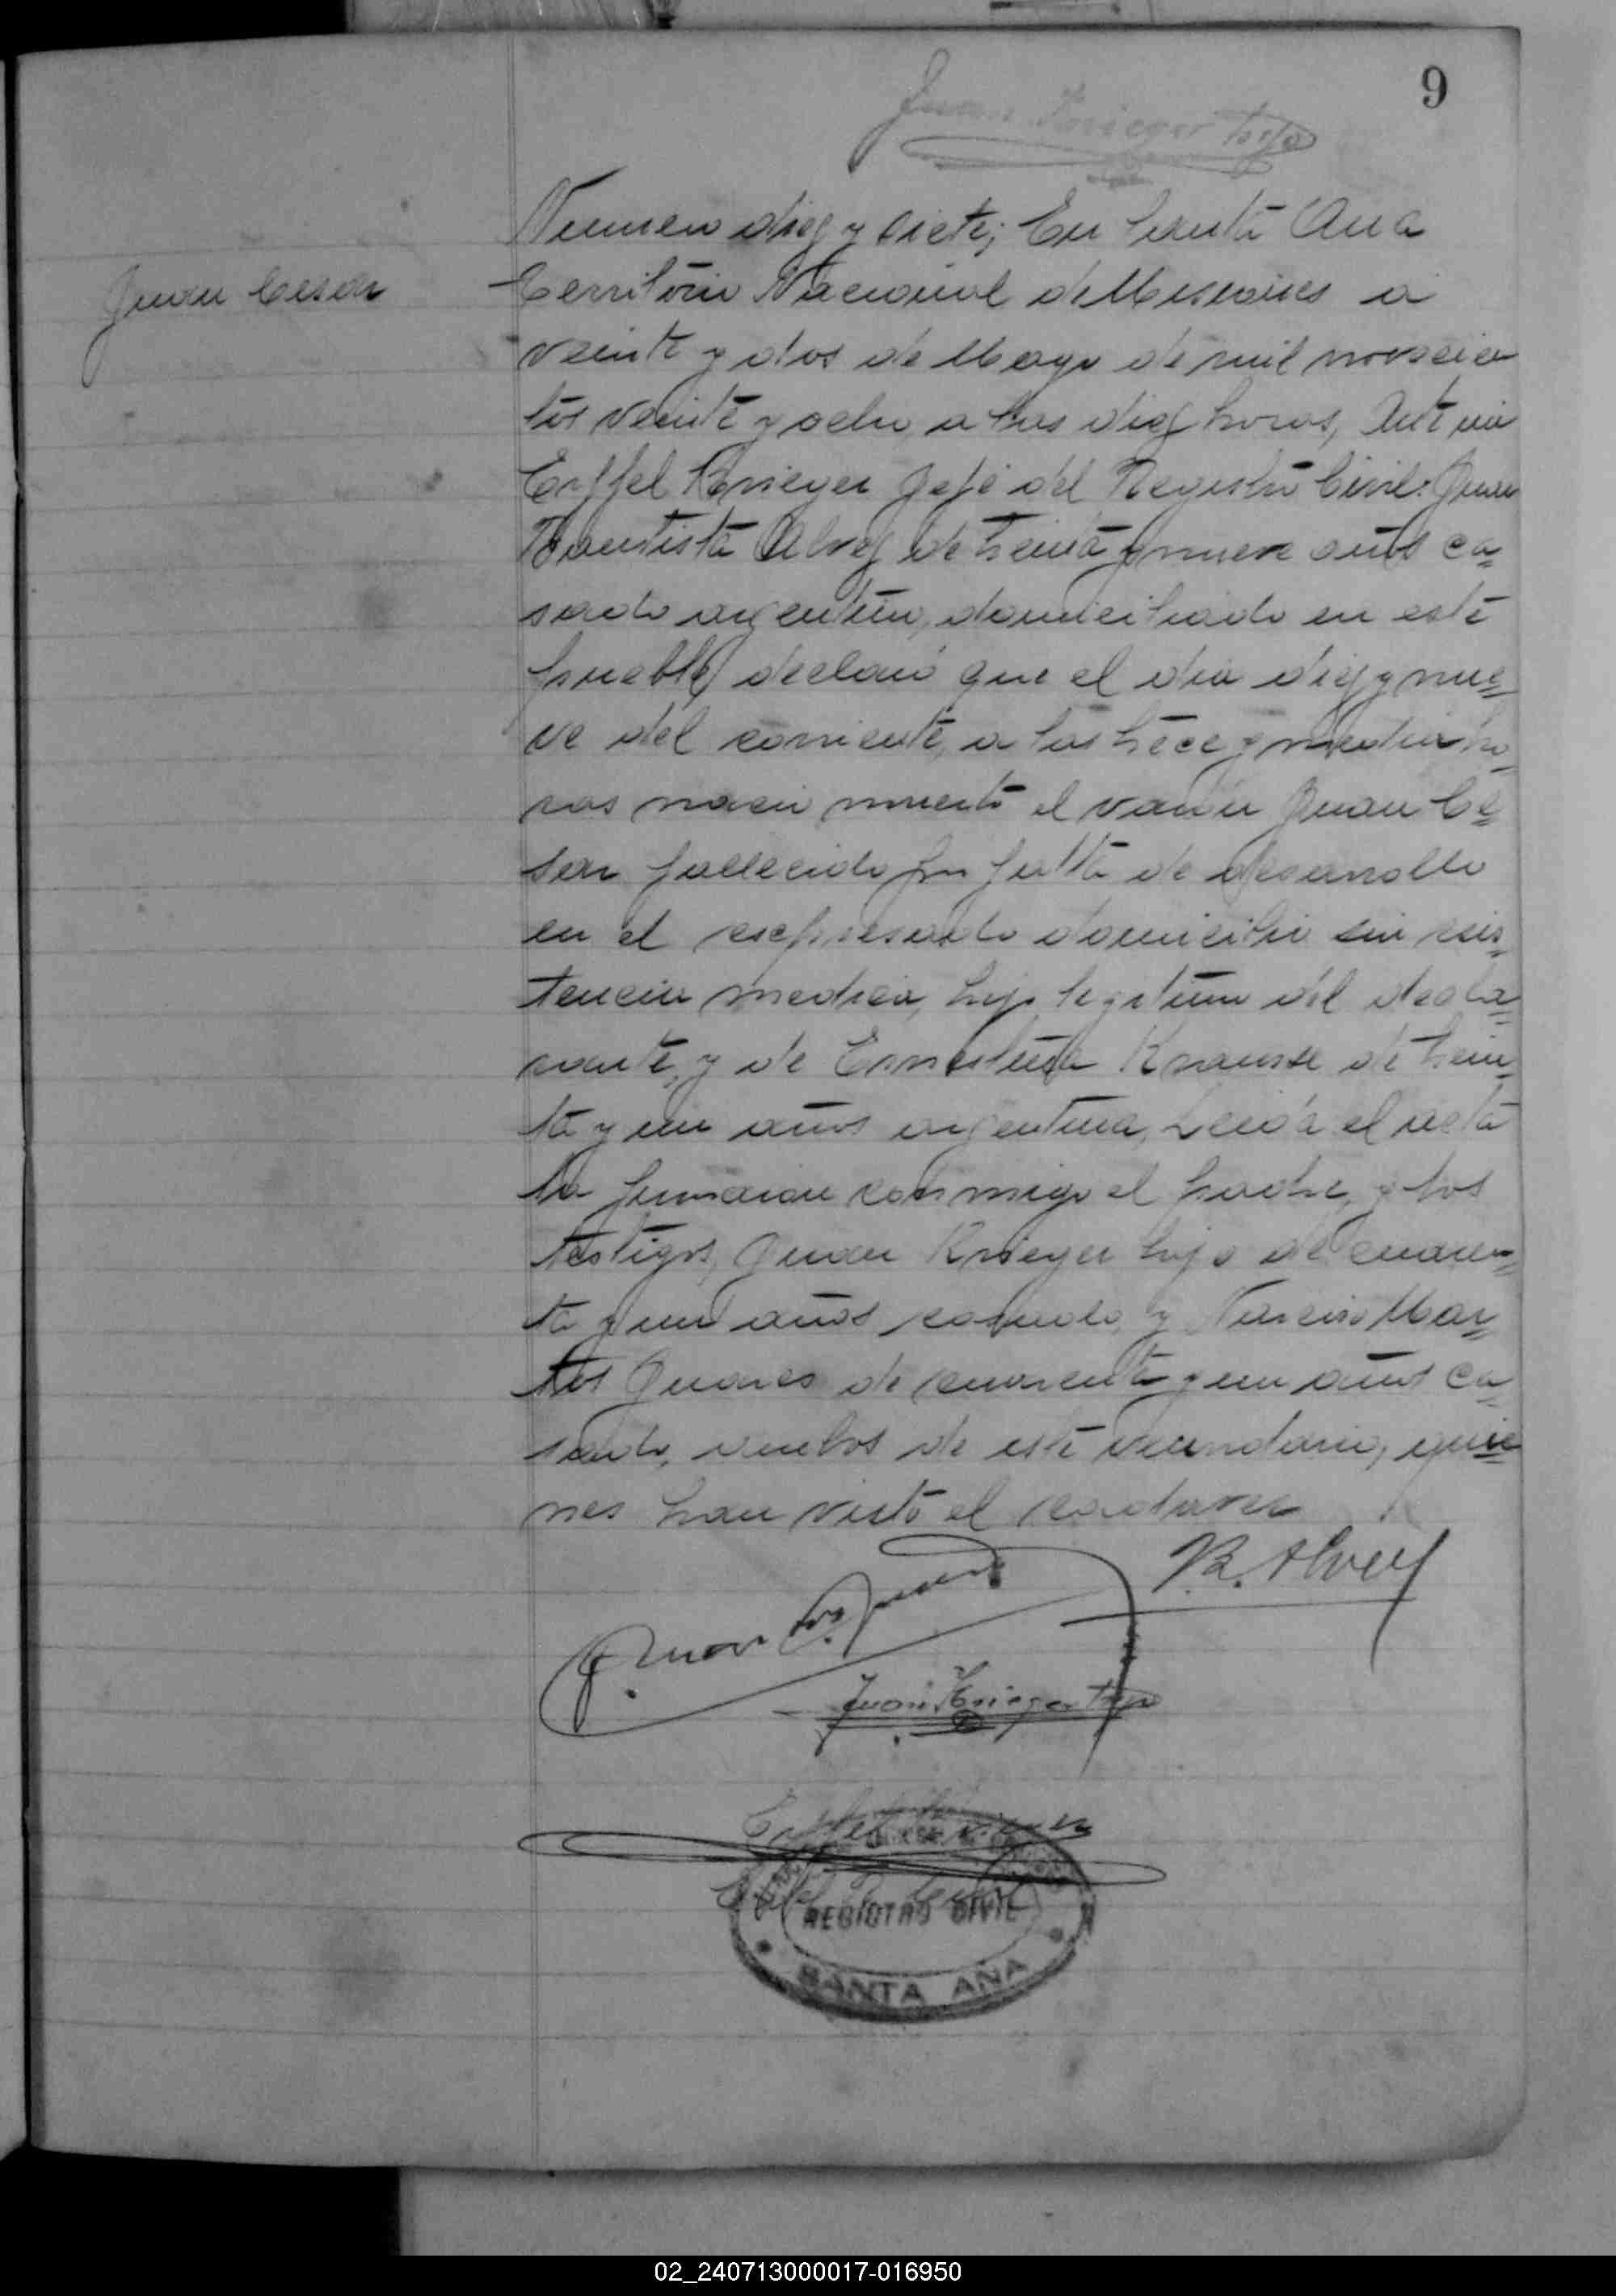 9
Juan Krieger hijo
Juan Cesar
Numero diez y siete; En Santa Ana
Territorio Nacional de Misiones a
veinte y dos de Mayo de mil novecien
tos veinte y ocho a las diez horas, Ante mi
Eiffel Krieger Jefe del Registro Civil: Juan
Bautista Alvez de treinta y nueve años ca=
sado argentino, domiciliado en este
pueblo, declaró que el dia diez y nue=
ve del corriente, a las trece y media ho=
ras nacio muerto el varon Juan Ce=
sar fallecido por falta de desarrollo
en el expresado domicilio sin asis=
tencia medica, hijo legitimo del decla=
rante, y de Ernestina Krausse de trein=
ta y un años argentina, Leida el acta
la firmaron conmigo el padre, y los
testigos, Juan Krieger hijo de cuaren=
ta y un años casado, y Narciso Mar=
tos Juares de cuarenta y un años ca=
sado, ambos de este vecindario, quie=
nes han visto el cadaver
B. Alvez
Juan Krieger hijo
Eiffel Krieger
REGISTRO CIVIL
SANTA ANA
02_240713000017-016950